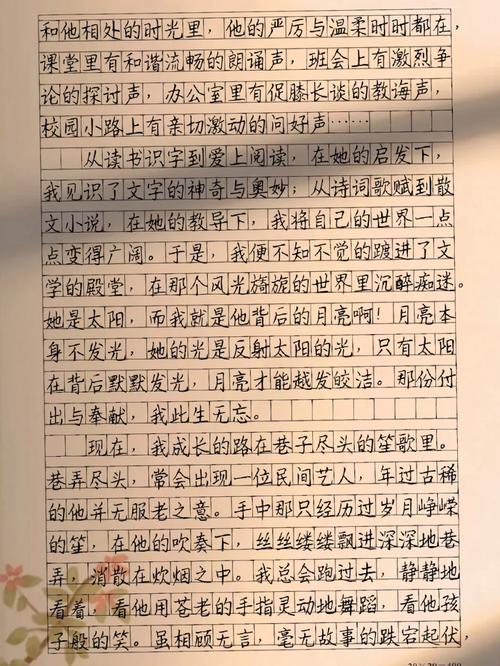 和他相处的时光里，他的严厉与温柔时时都在，
课堂里有和谐流畅的朗诵声，班会上有激烈争
论的探讨声，办公室里有促膝长谈的教诲声，
校园小路上有亲切激动的问好声……
从读书识字到爱上阅读，在她的启发下，
我见识了文字的神奇与奥妙；从诗词歌赋到散
文小说，在她的教导下，我将自己的世界一点
点变得广阔。于是，我便不知不觉的踱进了文
学的殿堂，在那个风光旖旎的世界里沉醉痴迷。
她是太阳，而我就是他背后的月亮啊！月亮本
身不发光，她的光是反射太阳的光，只有太阳
在背后默默发光，月亮才能越发皎洁。那份付
出与奉献，我此生无忘。
现在，我成长的路在巷子尽头的笙歌里。
巷弄尽头，常会出现一位民间艺人，年过古稀
的他并无服老之意。手中那只经历过岁月峥嵘
的笙，在他的吹奏下，丝丝缕缕飘进深深地巷
弄，消散在炊烟之中。我总会跑过去，静静地
看着，看他用苍老的手指灵动地舞蹈，看他孩
子般的笑。虽相顾无言，毫无故事的跌宕起伏，
20×20=400